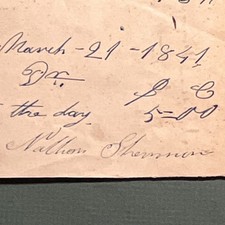 March - 21 - 1841
Dr. $ C
the day 5=00
Nathan Sherman